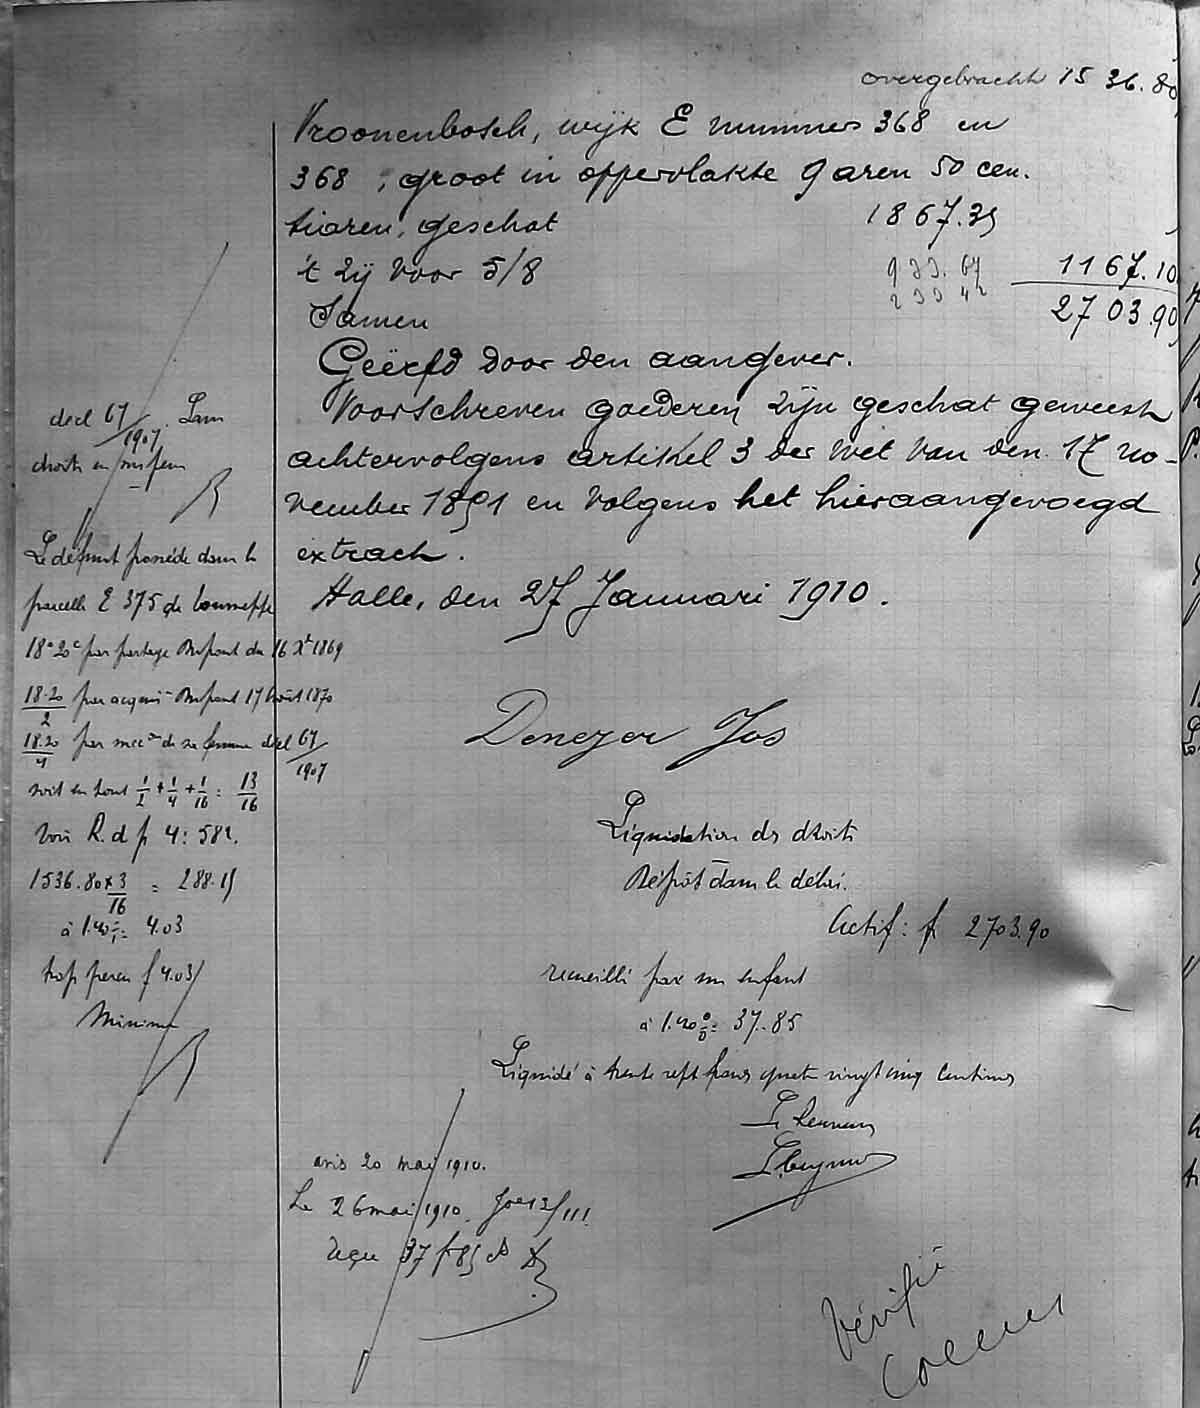 overgebracht 15 36.80
Vroonenbosch, wijk E nummers 368 en
368, groot in oppervlakte 9 aren 50 cen.
tiaren, geschat 1867.35
't zij voor 5/8 933.67 1167.10
233 42
Samen 2703.90
Geërfd door den aangever.
Voorschreven goederen zijn geschat geweest
achtervolgens artikel 3 der wet van den 17 no-
vember 1891 en volgens het hieraangevoegd
extrach.
Halle, den 27 Januari 1910.
Denezer Jos
Liquidation des droits
Dépôt dans le délai.
Actif: f. 2703.90
recueilli par un enfant
à 1.40 %= 37.85
Liquidé à trente sept francs quatre vingt cinq centimes
Le Receveur
avis 20 mai 1910.
Le 26 mai 1910.
reçu 37 fr 85 cs
Vérifié
decl 67/1907.
droits en suspens
Le défunt possède dans la
parcelle E 375 de
18a 20c par partage Dupont du 16 Xbre 1869
18.20/2 par acquis Dupont 17 Août 1870
18.20/4 par succ on de sa femme decl 67/1907
soit en tout 1/2 + 1/4 + 1/16 = 13/16
Voir R. d p 4: 582.
1536.80 x 3/16 = 288.15
à 1.40 %= 4.03
trop perçu f 4.03
Minime